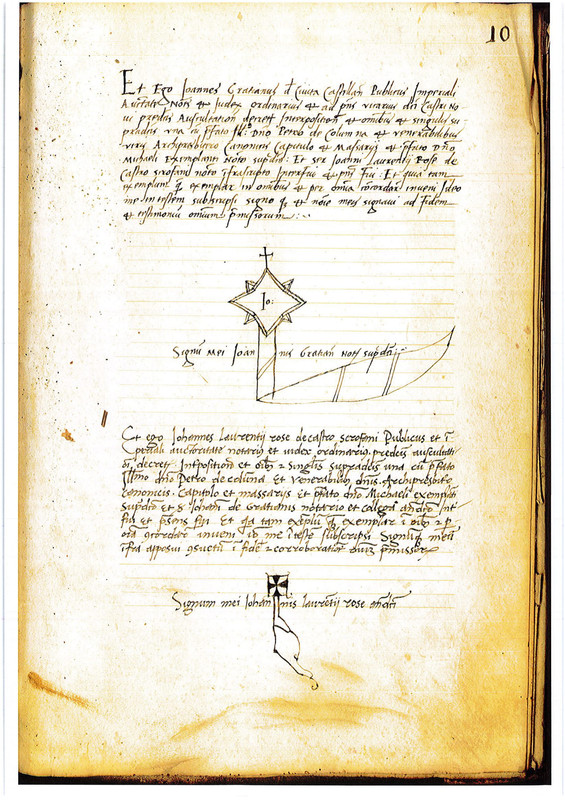 10
Et Ego Joannes Gratianus d Civita Castellan Publicus Imperiali
Auctate Nots et Judex ordinarius et ad pns vicarius dni Castri No
vi predcis Auscultation decret Interposition et omibus et singulis su
pradcis una cu pfato Ill. Dno Petro de Colum na et venerabilibus
veris Archipresbitero Canonicis Capitulo et Masarijs et pfato Dno
Michaeli Exemplanti Noto supdio: Et ser Joanni Laurentij Rose de
Castro srofani noto ifrascripto Interfui et pns fui: Et quia tam
exemplum q exemplar in omibus et per omia cocordar inveni Ideo
me in testem subscripsi signo q et noie meis signavi ad fidem
et testimoniu omnium pmissorum
Io:
Signu Mei Joan nis Gratian Nots supdci
Et ego Johannes laurentij rose de castro scrofani Publicus et i
Cperiali auctoritate notarius et iudex ordinarius predcis auscultati
oi decret Intpositioni et oibz 2 singulis supradcis una cu pfato
Illmo dno Petro de coluna et venerabilibus dnis Archipresbitro
Canonicis Capitulo et massarijs et pfato dno Michaele exemplati
supdto et S. Iohane de Gratianis notario et collega Int
fui et psens fui Et qa tam exeplu q exemplar i oibz 2 p
oia 9cordare inveni io me i teste subscripsi Signuq meu
ifra apposui 9suetu i fide 2 corroboratioe oium pmissor
Signum mei Iohan nis laurentij rose